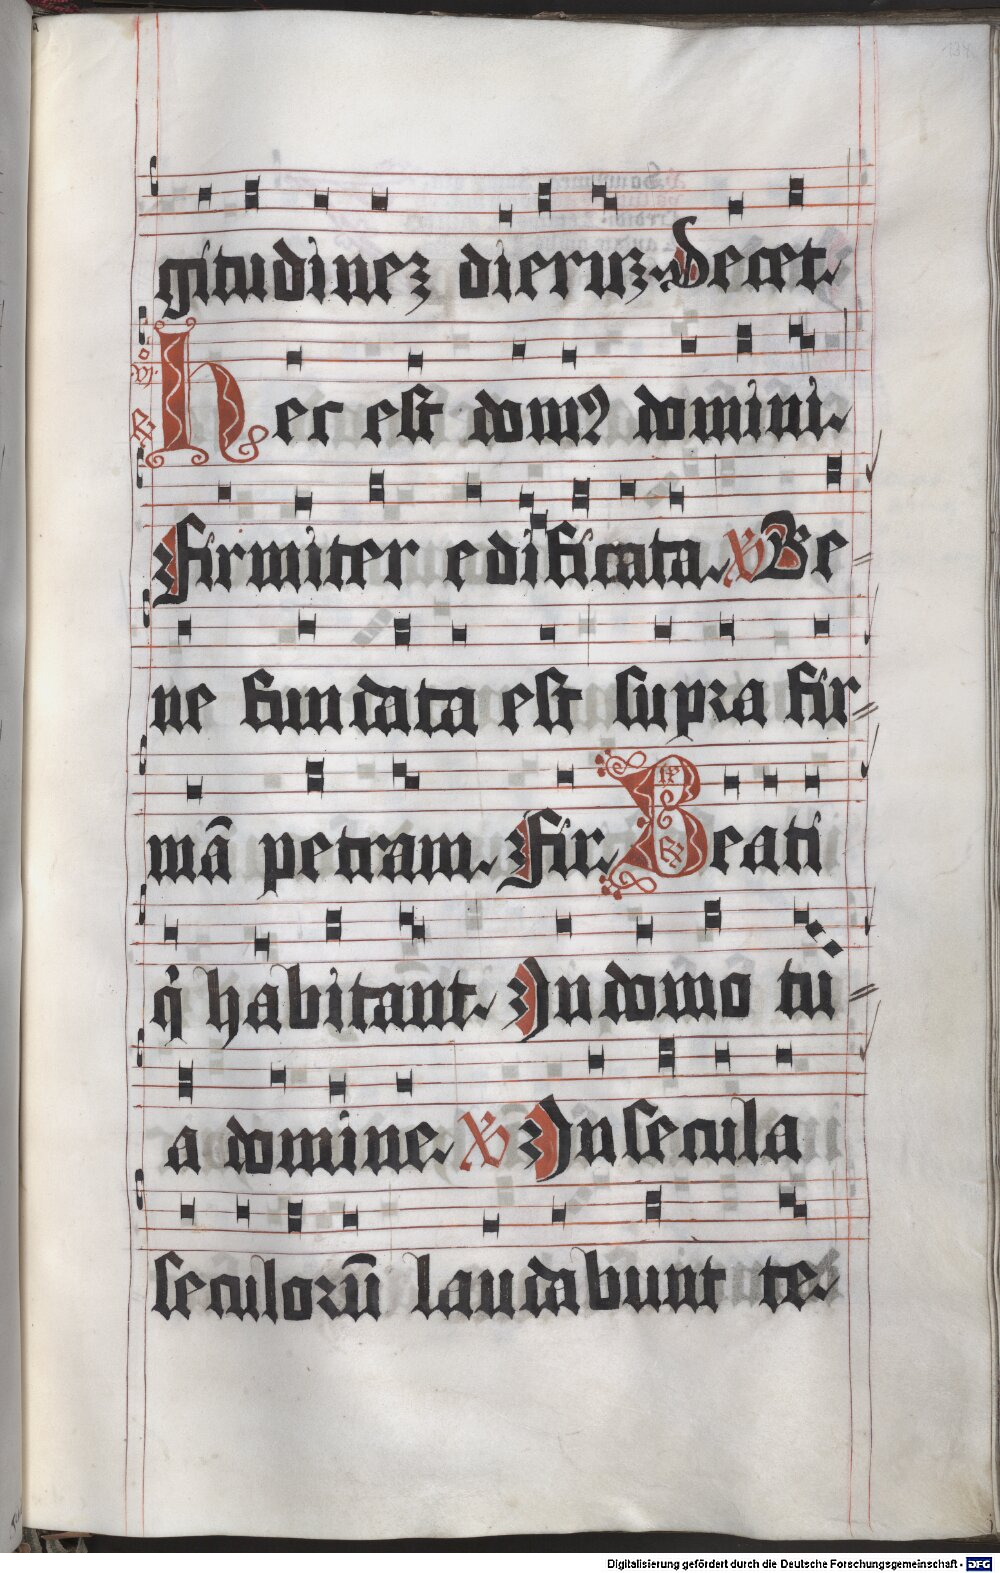 137
gitudinez dieruz. Decet.
vj. ℟ Hec est domꝰ domini.
Firmiter edificata. ℣ Be
ne fundata est supra fir
mā petram. Fir. ix ℟ Beati
q̇ habitant. In domo tu
a domine. ℣ In secula
seculorū laudabunt te.
Digitalisierung gefördert durch die Deutsche Forschungsgemeinschaft - DFG